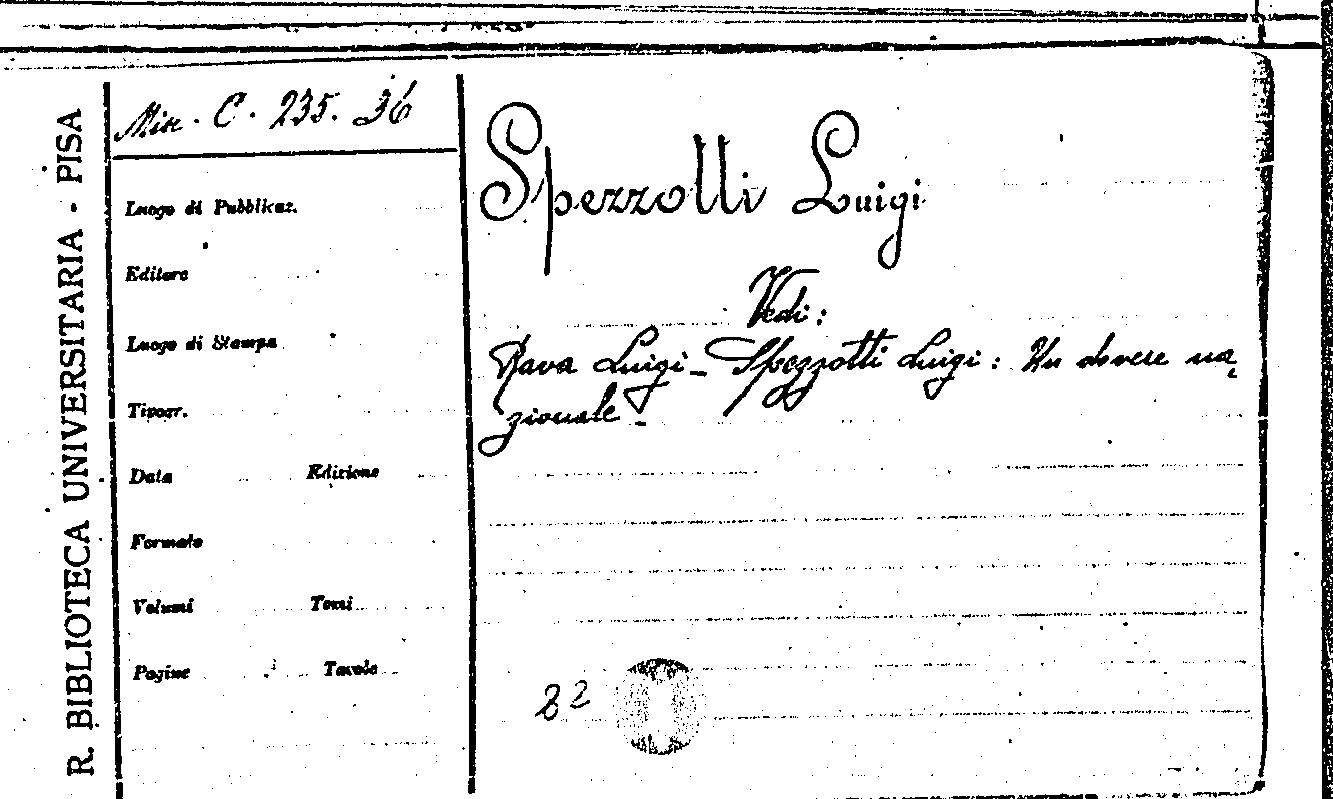 R. BIBLIOTECA UNIVERSITARIA - PISA
Misc. C. 235. 36
Luogo di Pubblicaz.
Editore
Luogo di Stampa
Tipogr.
Data Edizione
Formato
Volumi Tomi
Pagine Tavole
Spezzotti Luigi
Vedi:
Rava Luigi - Spezzotti Luigi: Un dovere na-
zionale -